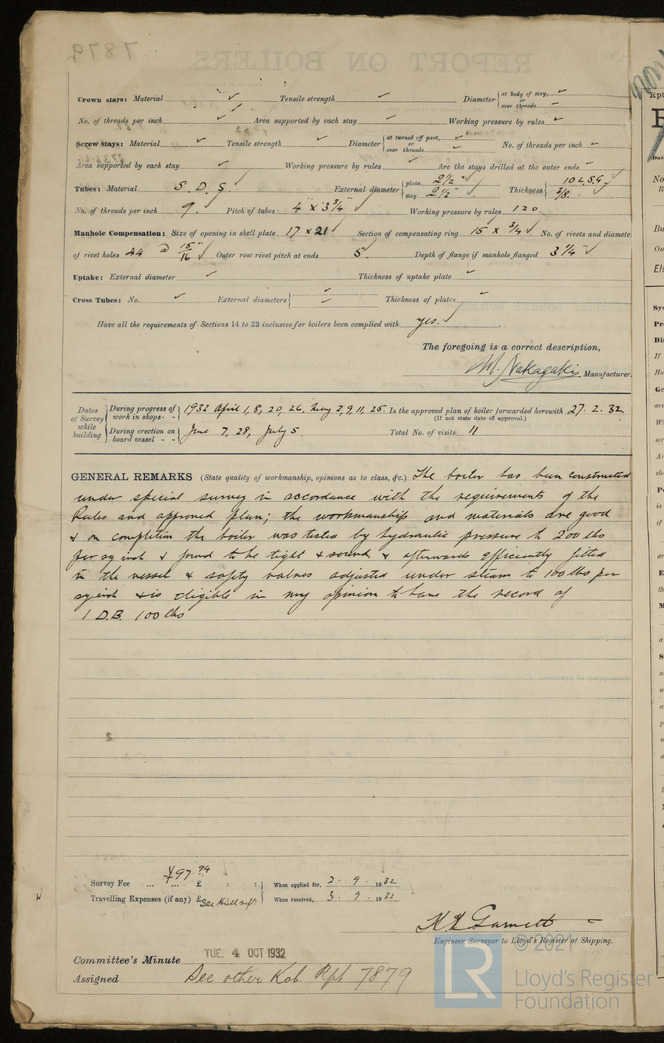 7879
REPORT ON BOILERS
Crown stays: Material ✓ Tensile strength ✓ Diameter { at body of stay, or over threads ✓
No. of threads per inch ✓ Area supported by each stay ✓ Working pressure by rules ✓
Screw stays: Material ✓ Tensile strength ✓ Diameter { at turned off part, or over threads ✓ No. of threads per inch ✓
Area supported by each stay ✓ Working pressure by rules ✓ Are the stays drilled at the outer ends ✓
Tubes: Material S.D.S. External diameter { plain 2½" stay 2½" Thickness { 10 L.S.G. 3/8.
No. of threads per inch 9. Pitch of tubes 4" x 3¾" Working pressure by rules 120.
Manhole Compensation: Size of opening in shell plate 17 x 21 Section of compensating ring 15 x ¾ No. of rivets and diameter
of rivet holes 44 @ 15/16" Outer row rivet pitch at ends 5. Depth of flange if manhole flanged 3¼"
Uptake: External diameter ✓ Thickness of uptake plate ✓
Cross Tubes: No. ✓ External diameters { ✓ Thickness of plates ✓
Have all the requirements of Sections 14 to 23 inclusive for boilers been complied with yes.
The foregoing is a correct description,
M. Nakagaki Manufacturer.
Dates of Survey while building { During progress of work in shops - - } 1932 April 1, 8, 20, 26, May 2, 9, 11, 25. Is the approved plan of boiler forwarded herewith 27. 2. 32. (If not state date of approval.)
{ During erection on board vessel - - } June 7, 28, July 5. Total No. of visits 11
GENERAL REMARKS (State quality of workmanship, opinions as to class, &c.) The boiler has been constructed
under special survey in accordance with the requirements of the
Rules and approved plan; the workmanship and materials are good
& on completion the boiler was tested by hydraulic pressure to 200 lbs
per sq inch & found to be tight & sound & afterwards efficiently fitted
in the vessel & safety valves adjusted under steam to 100 lbs per
sq inch & is eligible in my opinion to have the record of
1 D.B. 100 lbs
Survey Fee ... ... £ ¥97. : : When applied for, 2. 9. 1932
Travelling Expenses (if any) £ See When received, 1932
Engineer Surveyor to Lloyd's Register of Shipping.
Committee's Minute TUE. 4 OCT 1932
Assigned See other Kob. Rpt 7879
LR © 2021
Lloyd's Register
Foundation